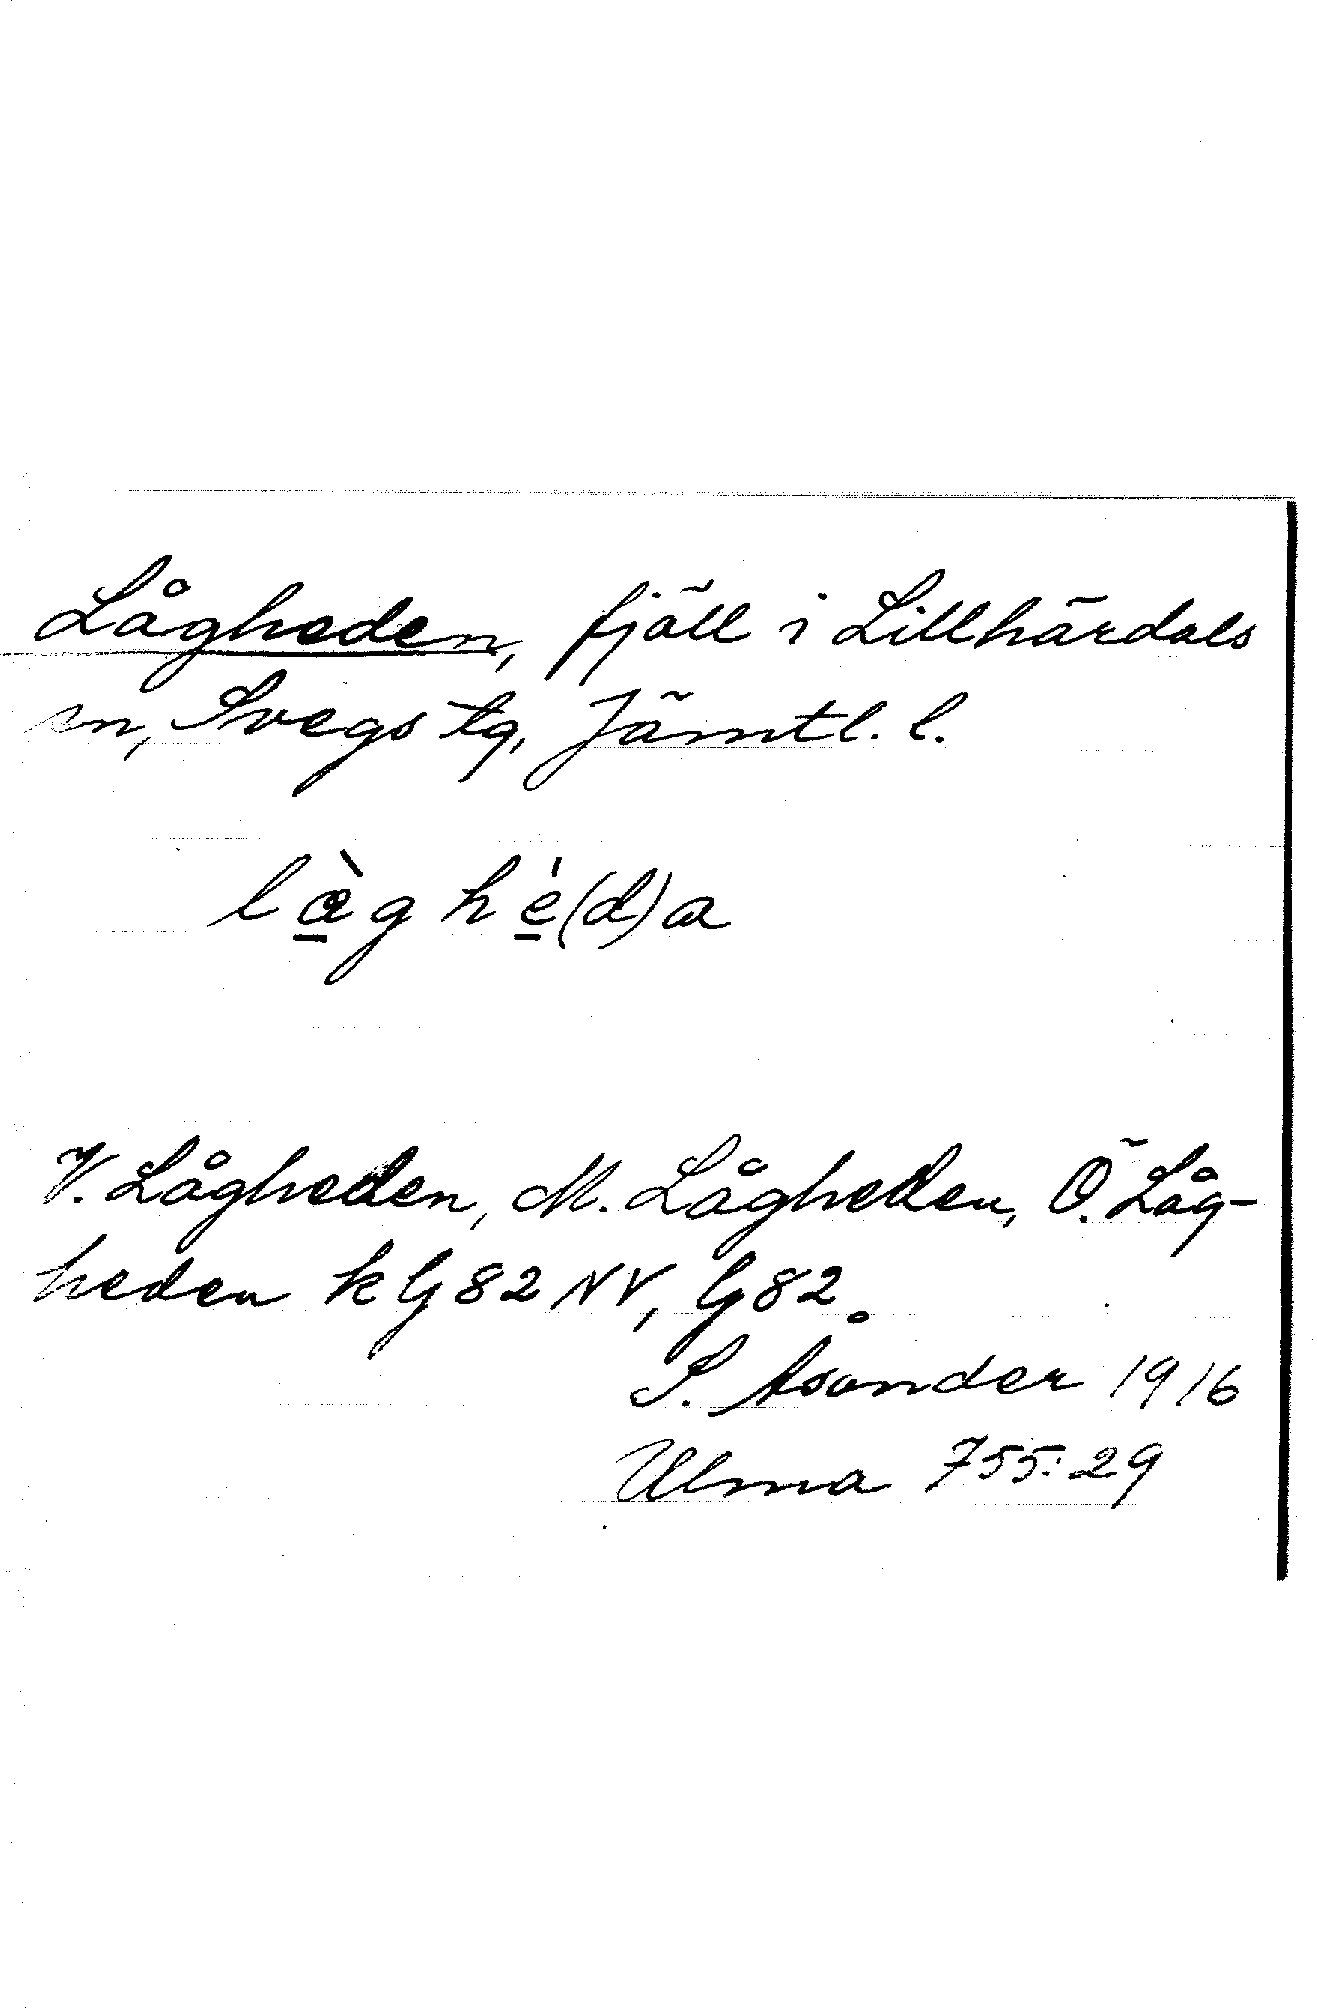 Lågheden, fjäll i Lillhärdals
sn, Svegs tg, Jämtl. l.
lg̀ghé(d)a
V. Lågheden, M. Lågheden, Ö. Låg-
heden kG 82 NV, G 82.
S. Åsander 1916
Ulma 755:29